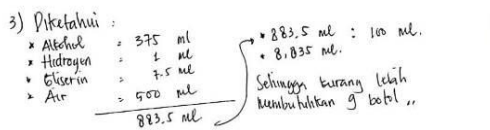 3) Diketahui :
* Alkohol : 375 ml
* Hidrogen : 1 ml
* Gliserin : 7.5 ml
* Air : 500 ml
883.5 ml
* 883.5 ml : 100 ml.
* 8.835 ml.
Sehingga kurang lebih
membutuhkan 9 botol ,,